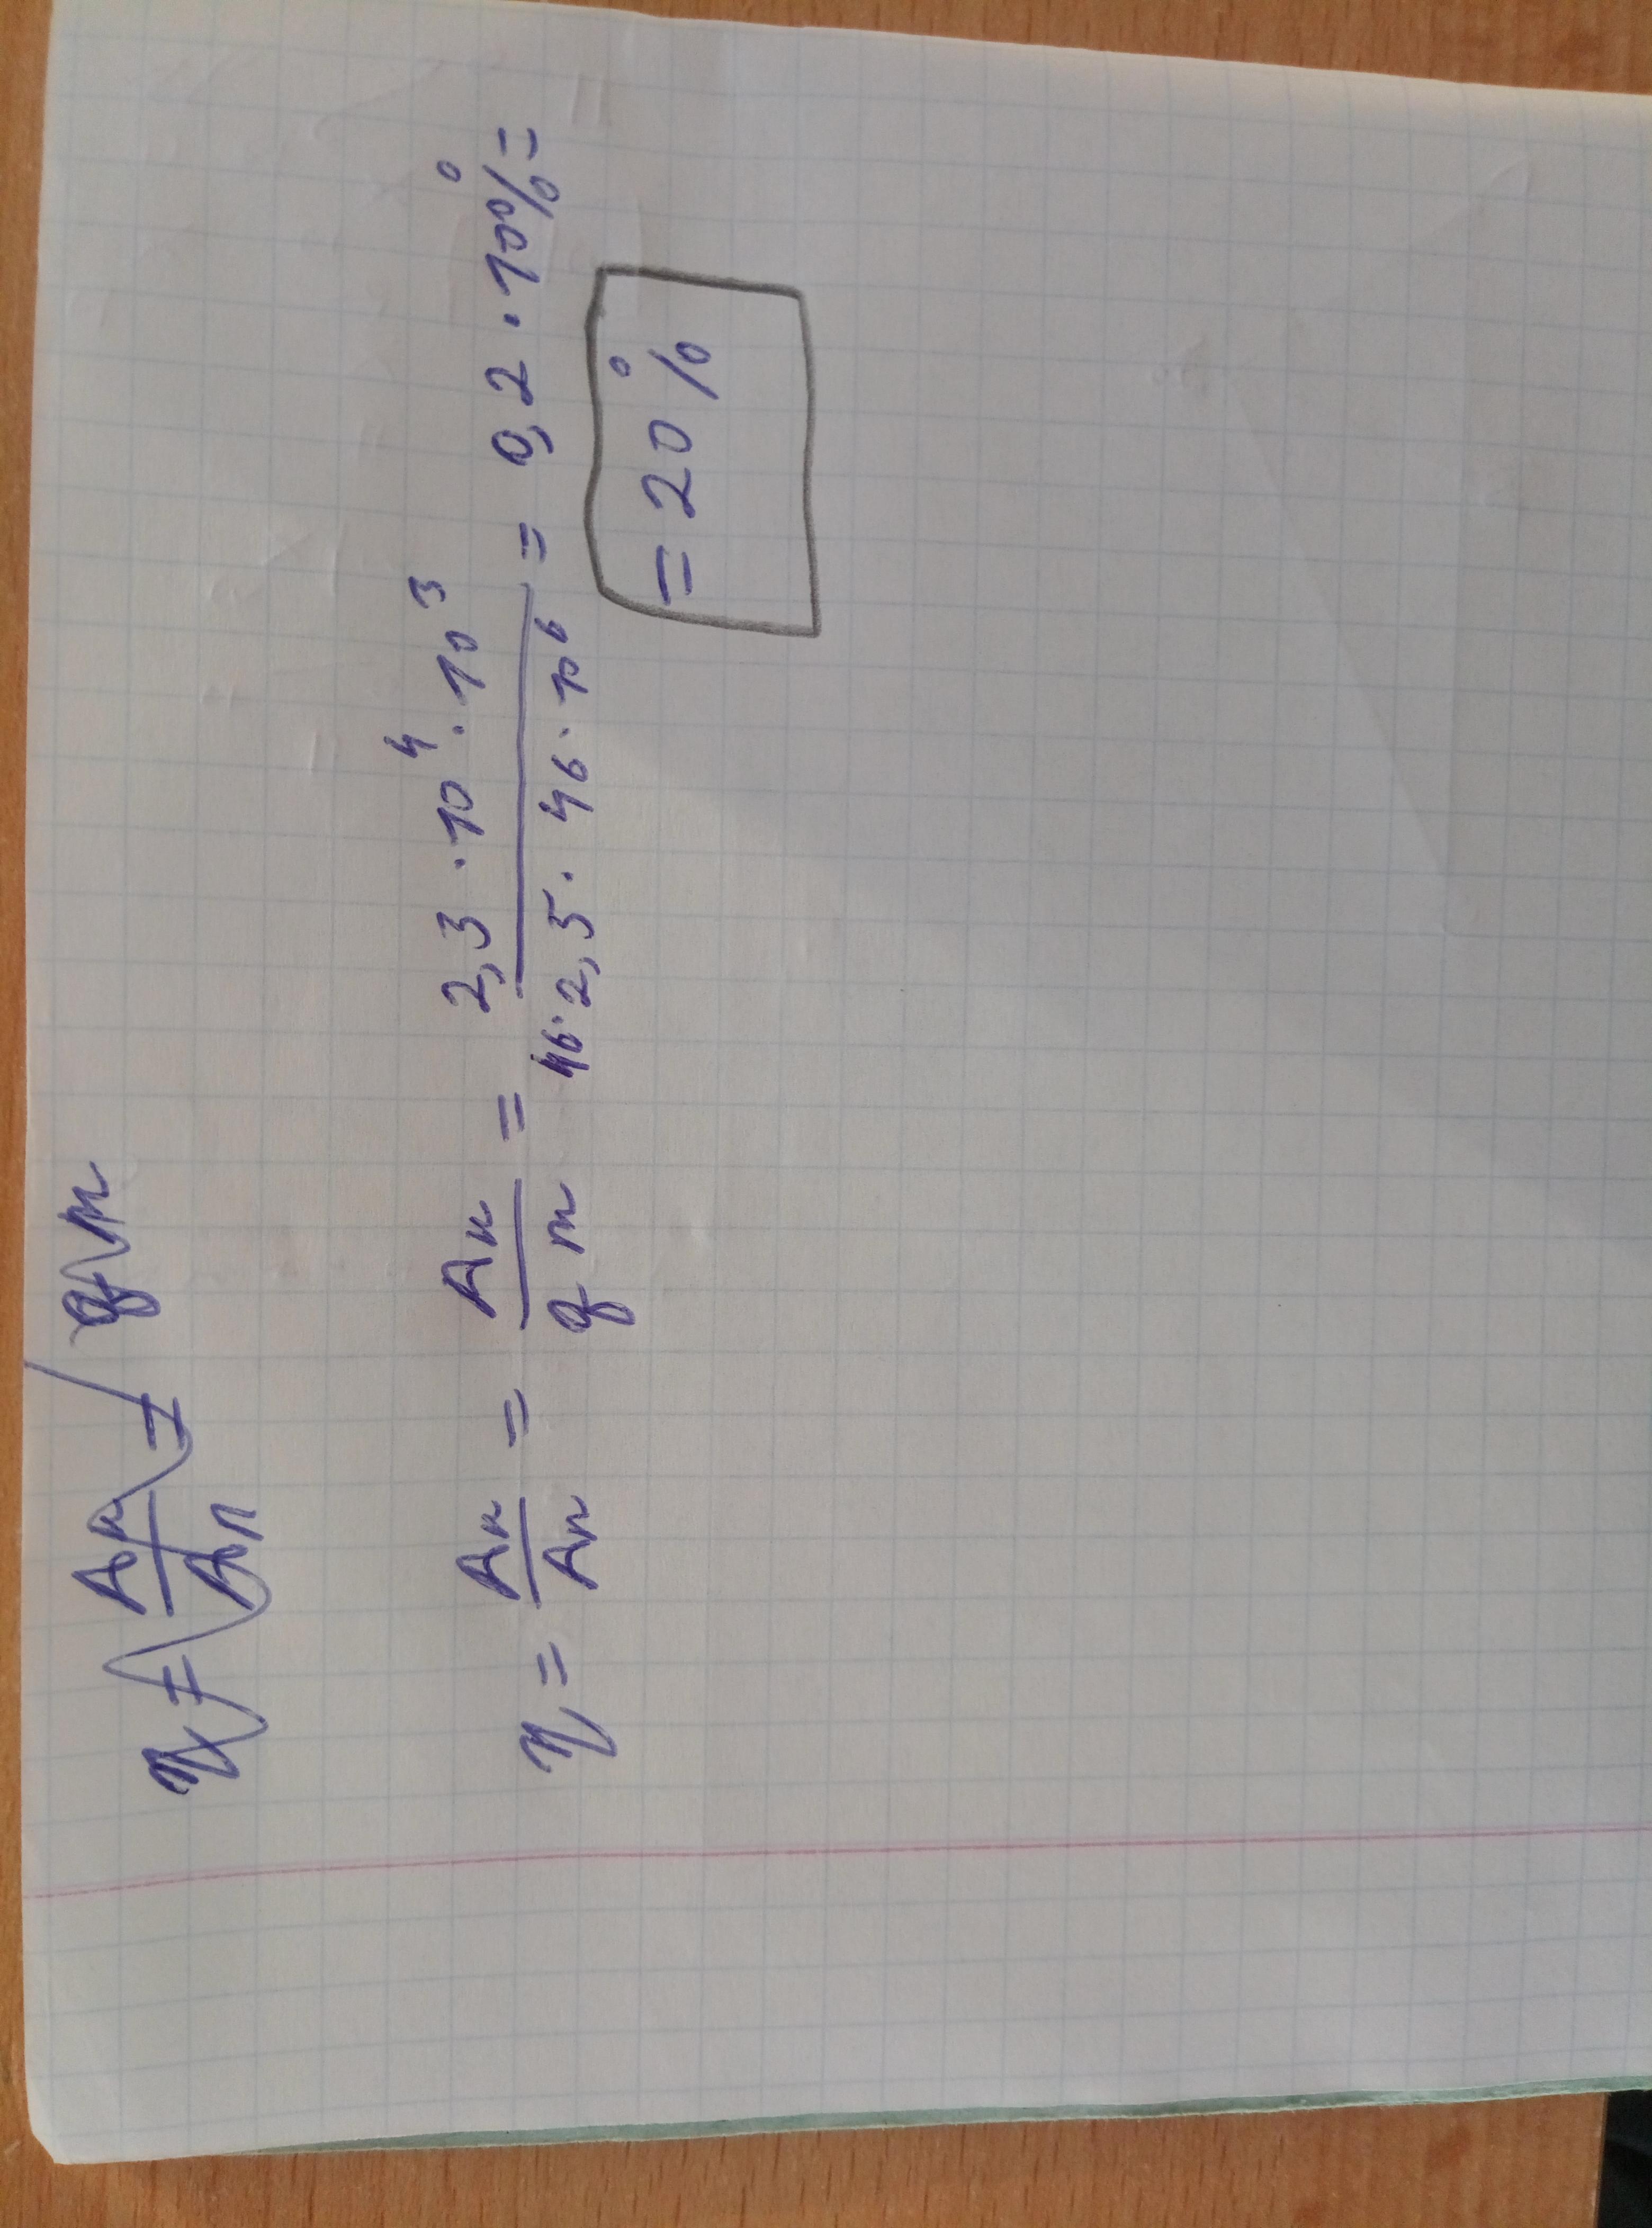 η = Aп/Aп = qm
η = Aп/Aп = Aп/qm = 2,3·10⁴·10³/46·2,5·46·10⁶ = 0,2·100%=
= 20%